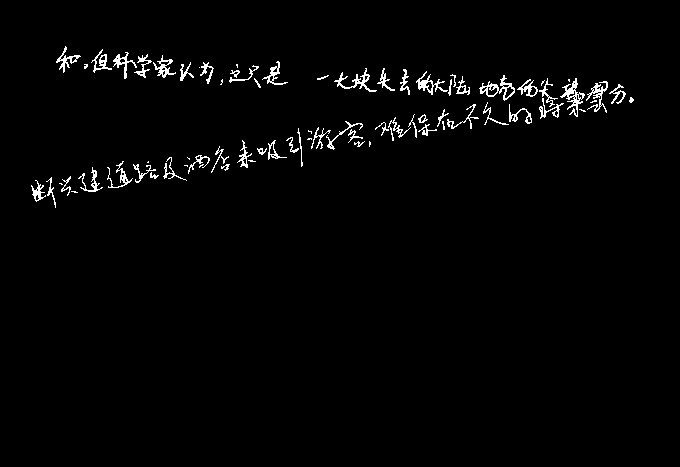 和。但科学家认为,这只是 一大块失去的大陆地壳的
断兴建道路及酒店来吸引游客,难保在不久的将